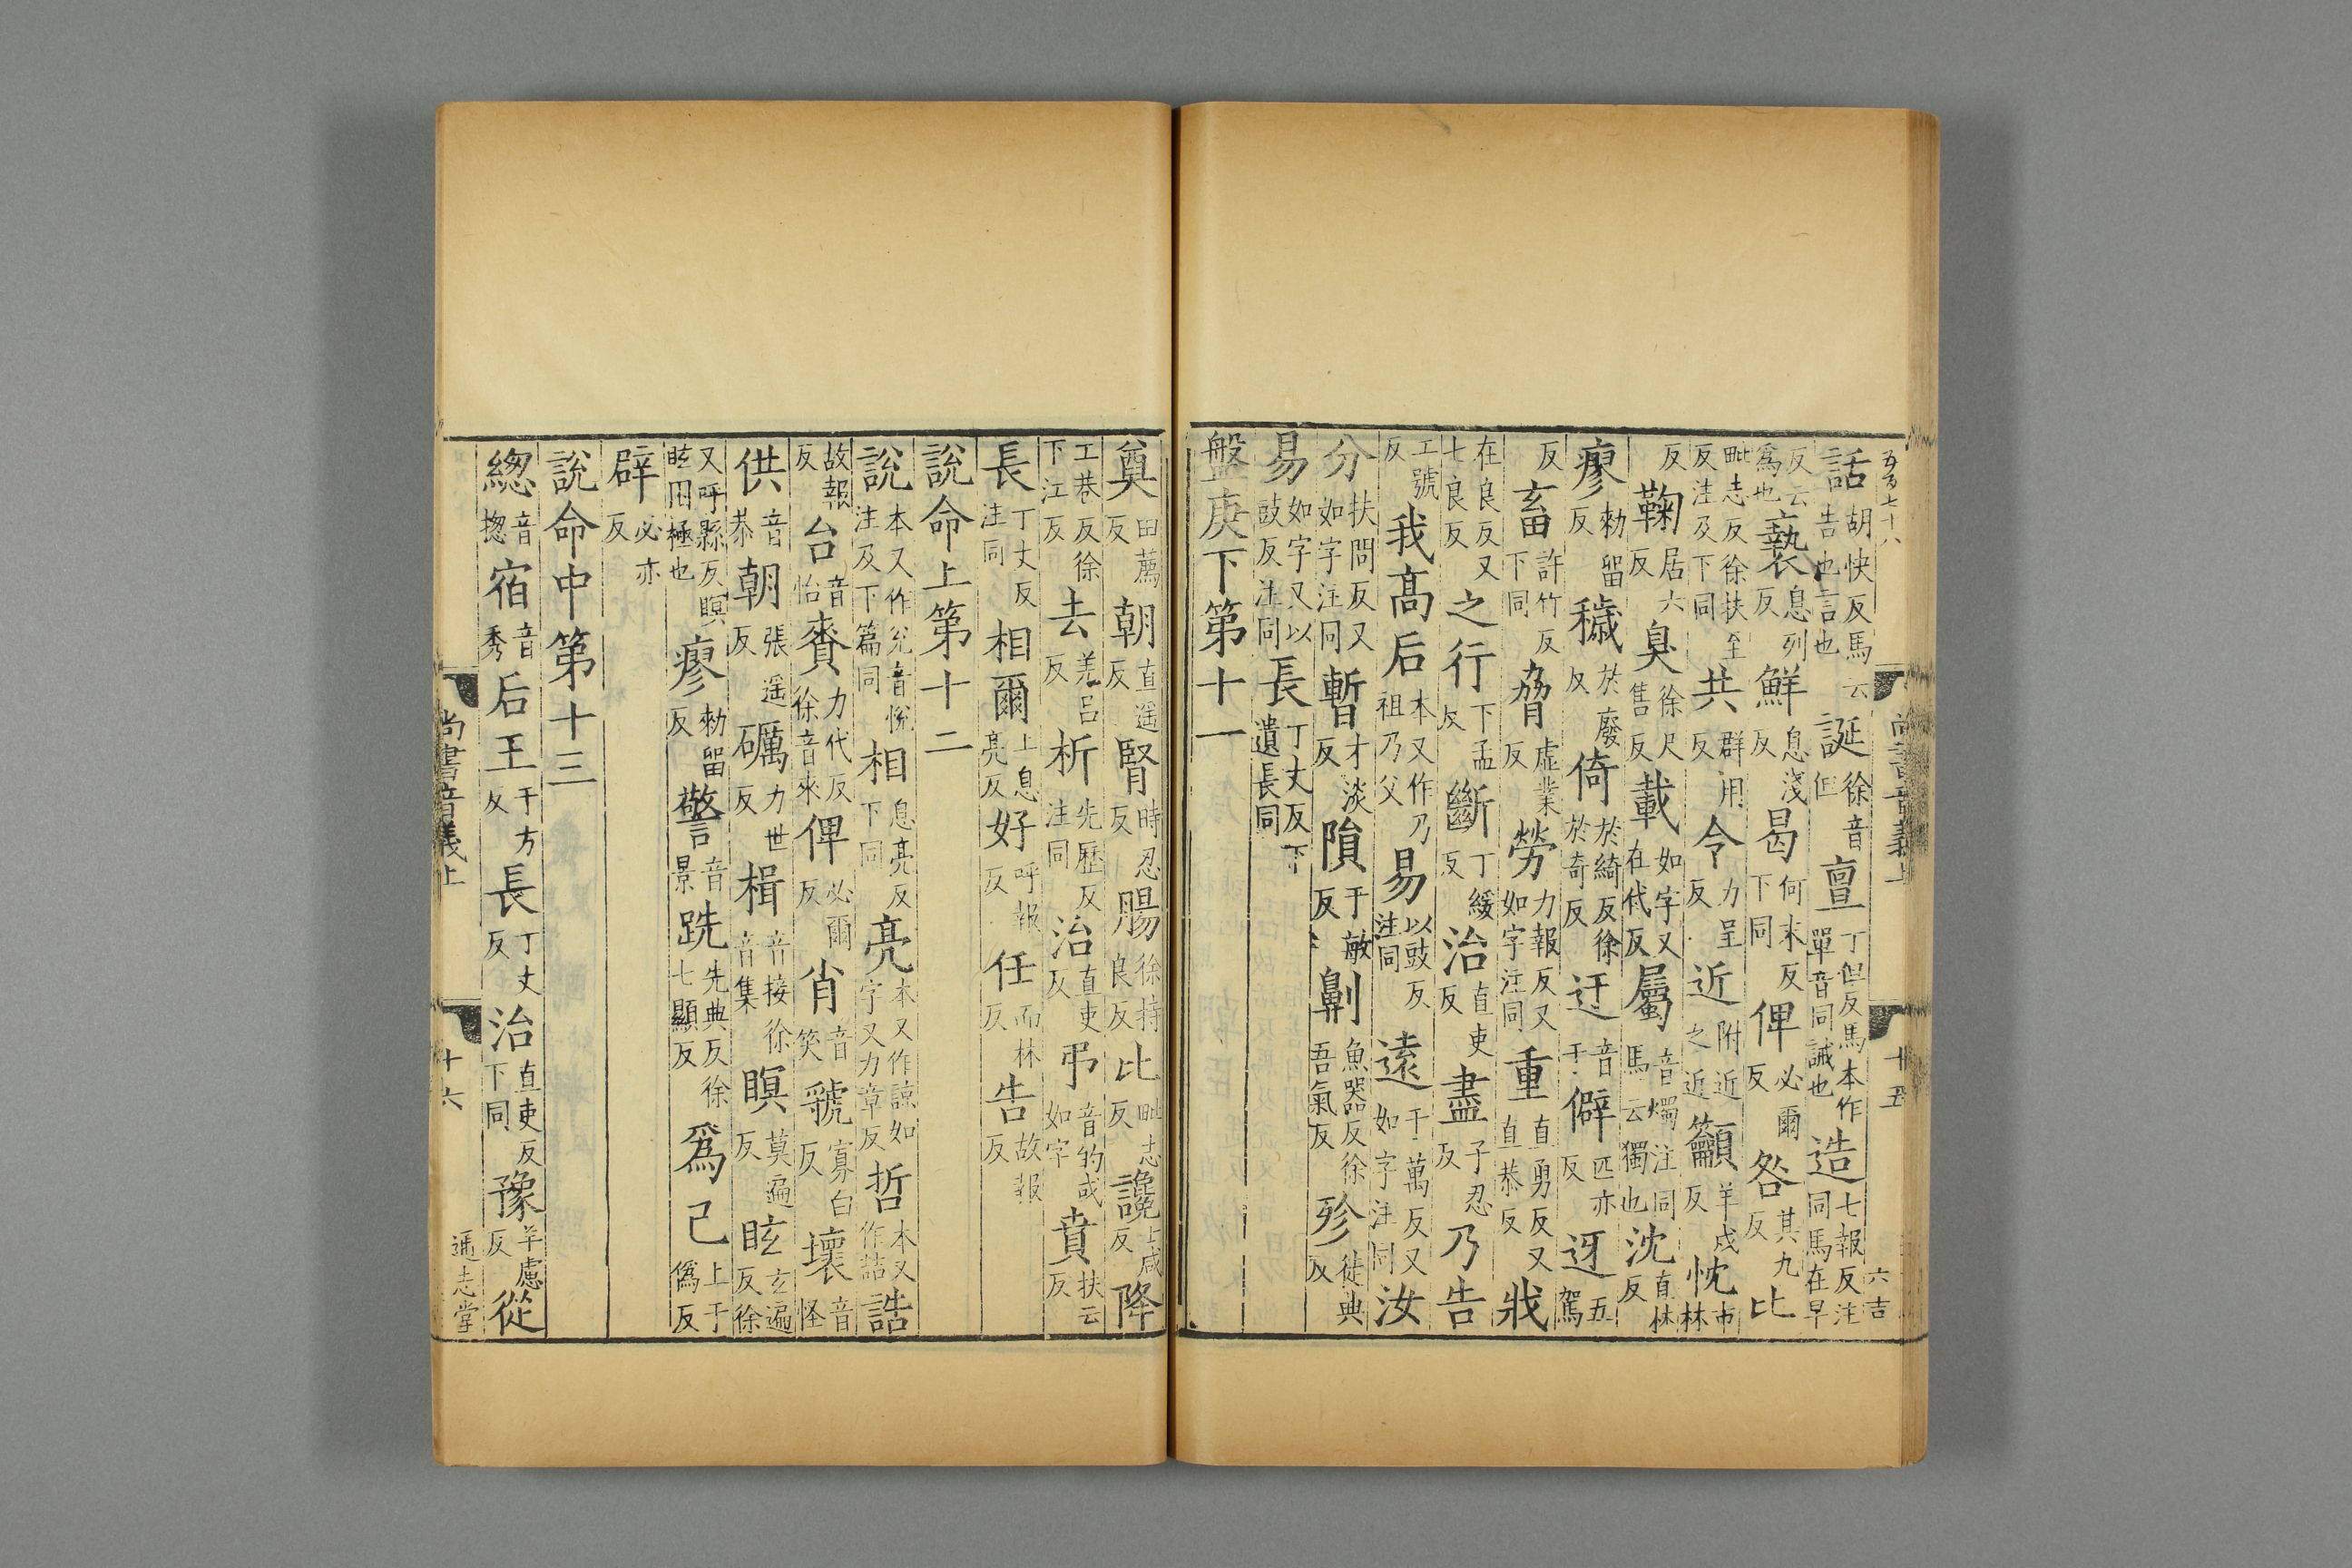 話胡快反馬云告也言也誕徐音但亶丁但反馬本作單音同誠也造七報反注同馬在早
反云爲也褻息列反鮮息淺反曷何末反下同俾必爾反咎其九反比
毗志反徐扶至反注及下同共群用反令力呈反近附近之近籲羊戍反忱市林
反鞠居六反臭徐尺售反載如字又在代反屬音燭注同馬云獨也沈直林反
瘳勑留反穢於廢反倚於綺反徐於奇反迂音于僻匹亦反迓五駕
反畜許竹反下同脅虛業反勞力報反又如字注同重直勇反又直恭反戕
在良反又七良反之行下孟反斷丁緩反治直吏反盡子忍反乃告
工號反我高后本又作乃祖乃父易以豉反注同遠于萬反又如字注同汝
分扶問反又如字注同暫才淡反隕于敏反劓魚器反徐吾氣反殄徒典反
易如字又以豉反注同長丁丈反下遺長同
盤庚下第十一
尚書音義上 十五
奠田薦反朝直遥反腎時忍反腸徐持良反比毗志反讒上咸反降
工巷反徐下江反去羌呂反析先歷反注同治直吏反弔音的或如字賁扶云反
長丁丈反注同相爾上息亮反好呼報反任而林反告故報反
說命上第十二
說本又作兌音悅注及下篇同相息亮反下同亮本又作諒如字又力章反哲本又作喆誥
故報反台音怡賚力代反徐音來俾必爾反肖音笑虢寡白反壞音怪
供音恭朝張遥反礪力世反楫音接徐音集瞑莫遍反眩玄遍反徐
又呼縣反瞑眩困極也瘳勑留反警音景跣先典反徐七顯反爲己上于僞反
辟必亦反
說命中第十三
總音揔宿音秀后王于方反長丁丈反治直吏反下同豫羊慮反從
尚書音義上 十六 通志堂